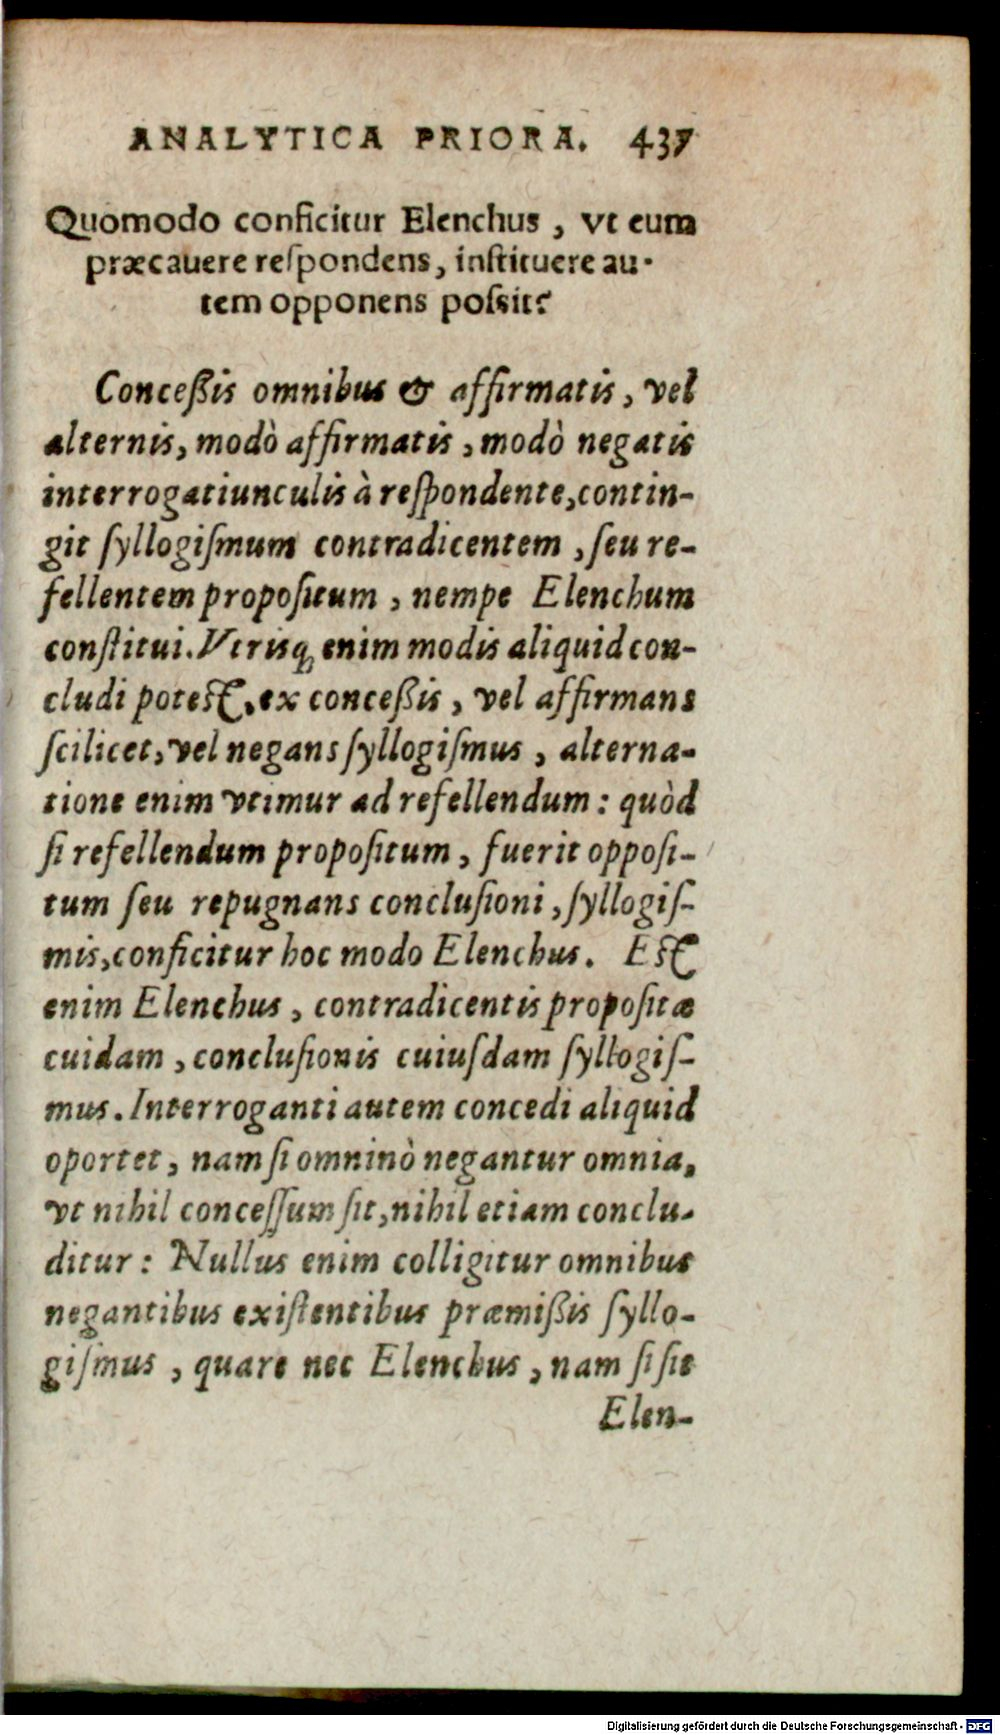 ANALYTICA PRIORA. 437
Quomodo conficitur Elenchus, vt eum
præcauere reſpondens, inſtituere au-
tem opponens poſsit?
Conceßis omnibus & affirmatis, vel
alternis, modò affirmatis, modò negatis
interrogatiunculis à reſpondente, contin-
git ſyllogiſmum contradicentem, ſeu re-
fellentem propoſitum, nempe Elenchum
conſtitui. Vtrisq; enim modis aliquid con-
cludi poteſt, ex conceßis, vel affirmans
ſcilicet, vel negans ſyllogiſmus, alterna-
tione enim vtimur ad refellendum: quòd
ſi refellendum propoſitum, fuerit oppoſi-
tum ſeu repugnans concluſioni, ſyllogiſ-
mis, conficitur hoc modo Elenchus. Eſt
enim Elenchus, contradicentis propoſitæ
cuidam, concluſionis cuiuſdam ſyllogiſ-
mus. Interroganti autem concedi aliquid
oportet, nam ſi omninò negantur omnia,
vt nihil conceſſum ſit, nihil etiam conclu-
ditur: Nullus enim colligitur omnibus
negantibus exiſtentibus præmißis ſyllo-
giſmus, quare nec Elenchus, nam ſi ſit
Elen-
Digitalisierung gefördert durch die Deutsche Forschungsgemeinschaft - DFG